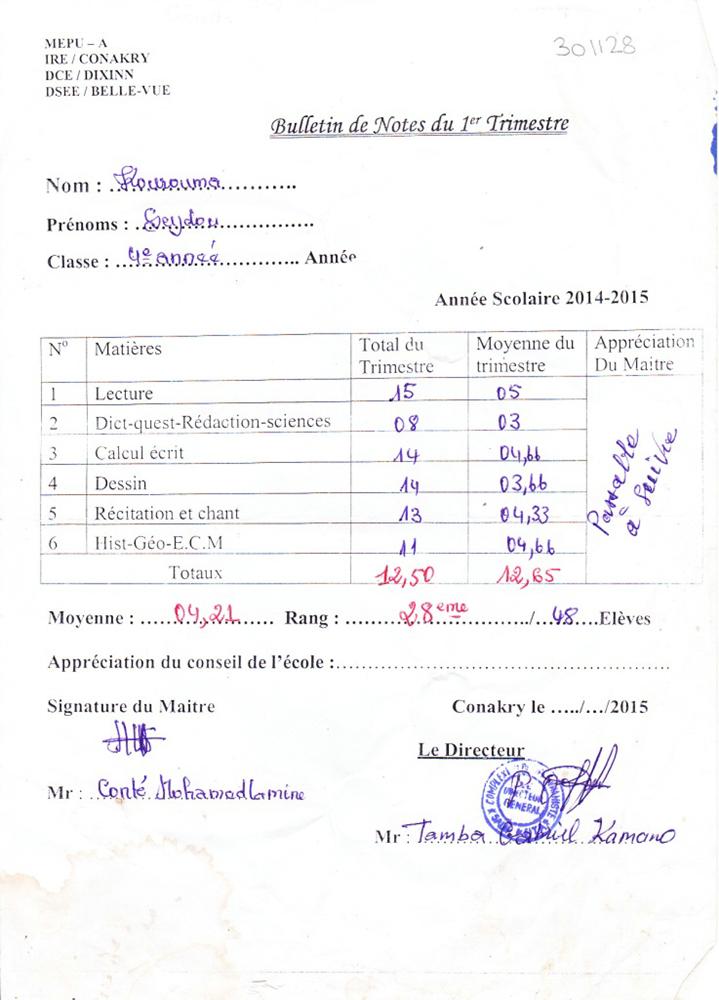 MEPU – A
IRE / CONAKRY
DCE / DIXINN
DSEE / BELLE-VUE
301128
Bulletin de Notes du 1er Trimestre
Nom : Kourouma
Prénoms : Seydou
Classe : 4e année Année
Année Scolaire 2014-2015
N° Matières Total du Trimestre Moyenne du trimestre Appréciation Du Maitre
1 Lecture 15 05
2 Dict-quest-Rédaction-sciences 08 03
3 Calcul écrit 14 04,66
4 Dessin 14 03,66
5 Récitation et chant 13 04,33
6 Hist-Géo-E.C.M 11 04,66
Passable
à Suivre
Totaux 12,50 12,65
Moyenne : 04,21 Rang : 28eme / 48 Elèves
Appréciation du conseil de l'école :
Signature du Maitre Conakry le …../…/2015
Le Directeur
Mr : Conté Mohamed Lamine
DIRECTEUR
GENERAL
Mr : Tamba Gabriel Kamano